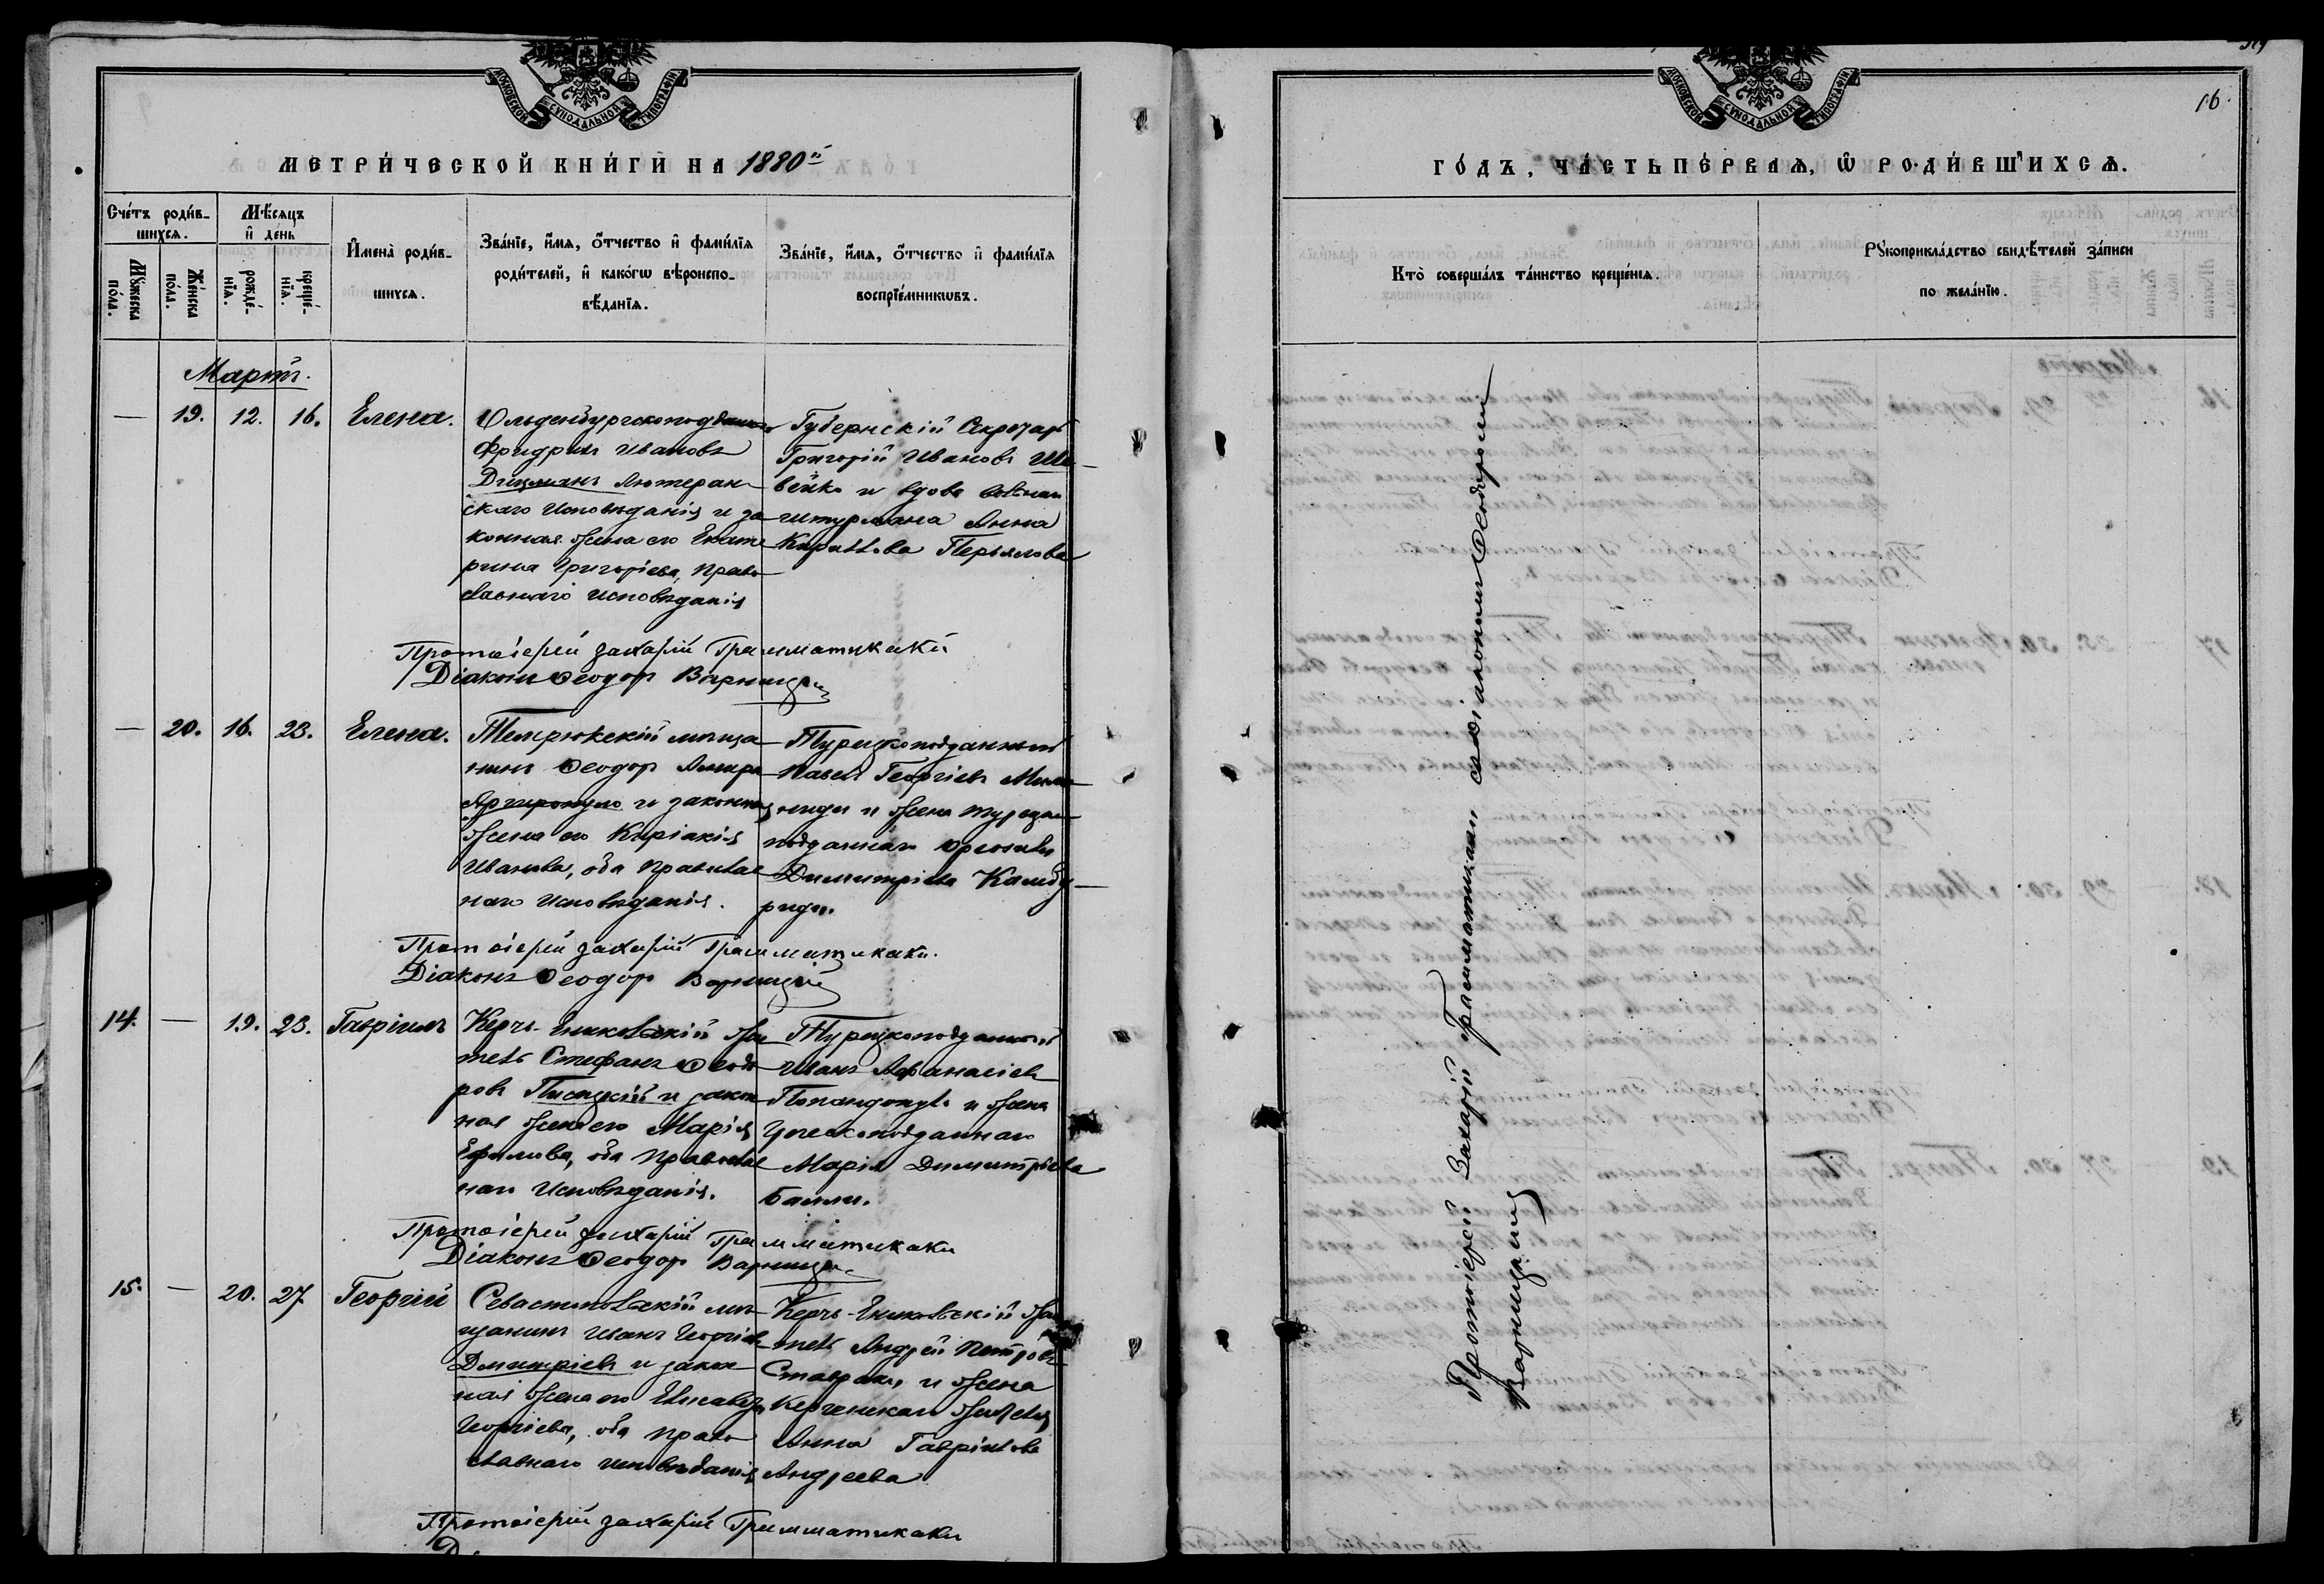 МОСКОВСКОЙ СѴНОДАЛЬНОЙ ТИПОГРАФІИ
МЕТРИ́ЧЕСКОЙ КНИ́ГИ НА 1880й
Сче́тъ роди́в-
шихся.
Мѣ́сяцъ
и҆ де́нь
Мꙋ́жеска по́ла.
Же́нска по́ла.
рожде́-
нїя.
креще́-
нїя.
И҆мена̀ роди́в-
шихся.
Зва́нїе, и҆́мя, ѻ҆́тчество и҆ фамı́лїя
роди́телей, и҆ како́гѡ вѣроиспо-
вѣ́данїя.
Зва́нїе, и҆́мя, ѻ҆́тчество и҆ фамı́лїя
воспрїе́мникѡвъ.
Мартъ.
— 19. 12. 16. Елена.
Ольденбургскоподданного
Фридрихъ Ивановъ
Дицманъ Лютеран-
скаго Исповѣданія и за
конная жена его Екате
рина Григоріева, Право
славнаго исповѣданія
Губернскій Секретарь
Григорій Ивановъ Ше-
вейко и вдова
штурмана Анна
Кириллова
Протоіерей Захарій Грамматикаки
Діаконъ Ѳеодоръ Варницкій
— 20. 16. 23. Елена.
Темрюкскій мѣща
нинъ Ѳеодоръ
Аргиропуло и законная
жена его Киріакія
Иванова, оба Православ
наго Исповѣданія.
Турецкоподданный
Павелъ Георгіевъ
и жена турецко-
подданнаго
Димитріева Камбу-
риди.
Протоіерей Захарій Грамматикаки.
Діаконъ Ѳеодоръ Варницкій
14. — 19. 23. Гавріилъ
Керчь-Еникольскій жи
тель Стефанъ Ѳеодо
ровъ Писецкій и закон
ная жена его Марія
Ефимова, оба Православ
наго Исповѣданія.
Турецкоподданный
Иванъ Афанасіевъ
Попандопуло и жена
Греческоподданнаго
Марія Димитріева
Балли.
Протоіерей Захарій Грамматикаки
Діаконъ Ѳеодоръ Варницкій
15. — 20. 27. Георгій
Севастопольскій мѣ
щанинъ Иванъ Георгіев
Дмитріевъ и закон
ная жена его Елисавета
Георгіева, оба Право
славнаго исповѣданія
Керчь-Еникольскій жи
тель Андрей Петровъ
Ставраки, и жена
Керченскаго жителя
Анна Гавріилова
Андреева
Протоіерей Захарій Грамматикаки
МОСКОВСКОЙ СѴНОДАЛЬНОЙ ТИПОГРАФІИ
16.
ГО́ДЪ, ЧА́СТЬ ПЕ́РВАЯ, Ѡ РОДИ́ВШИХСЯ.
Кто̀ соверша́лъ та́инство креще́нїя.
Рꙋкоприкла́дство свидѣ́телей за́писи
по жела́нїю.
Протоіерей Захарій Грамматикаки съ діакономъ Ѳеодоромъ
Варницкимъ